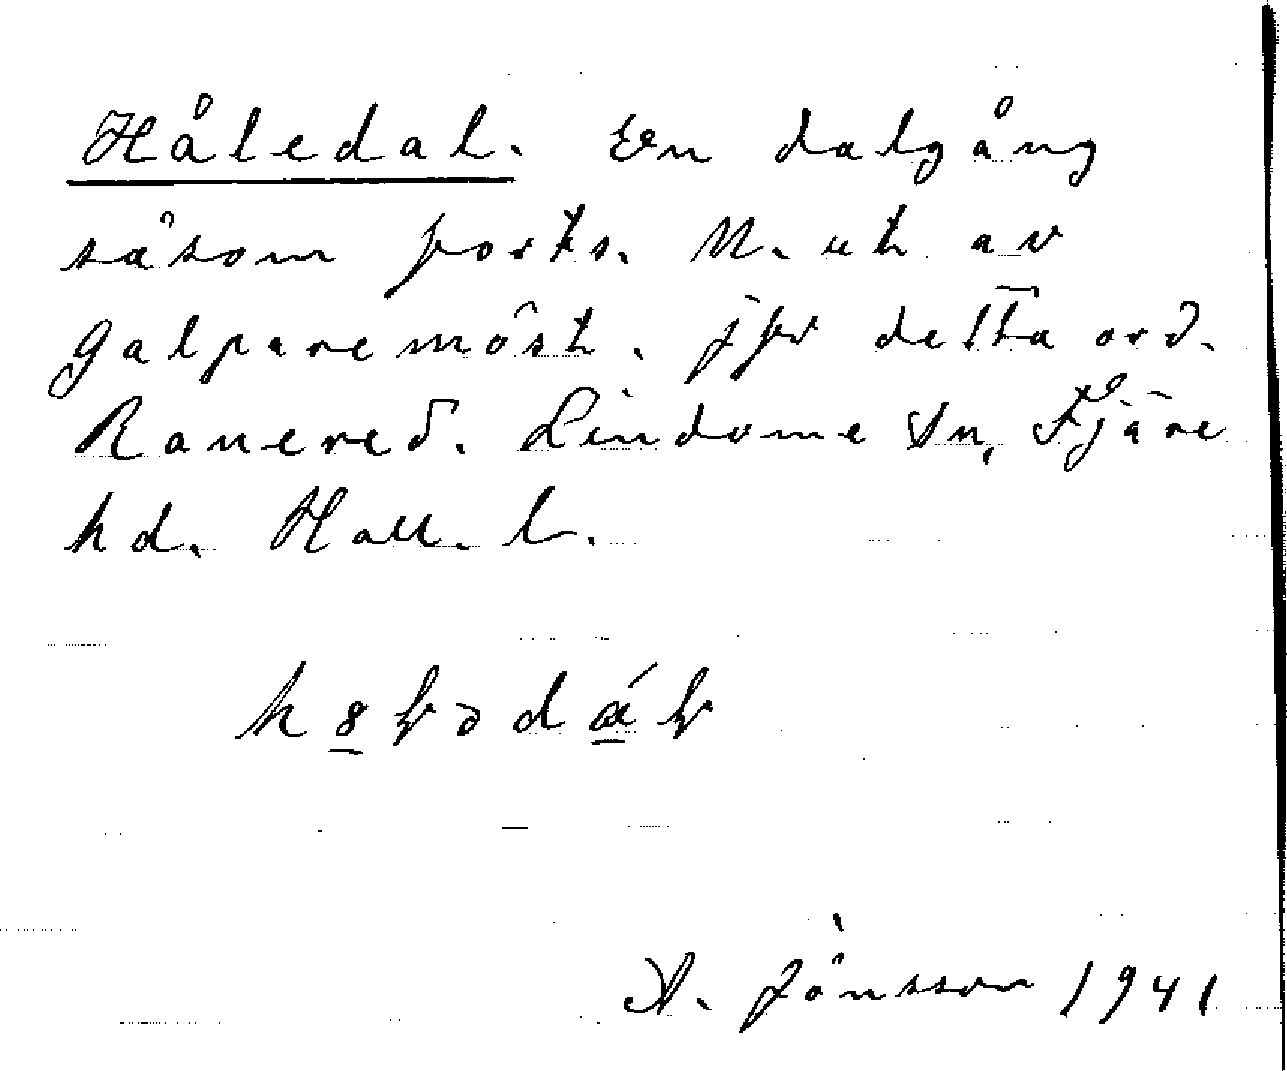 Håledal. En dalgång
såsom forts. N. ut av
Galparemöst. jfr detta ord.
Ranered. Lindome Sn, Fjäre
hd. Hall. l.
A. Jönsson 1941